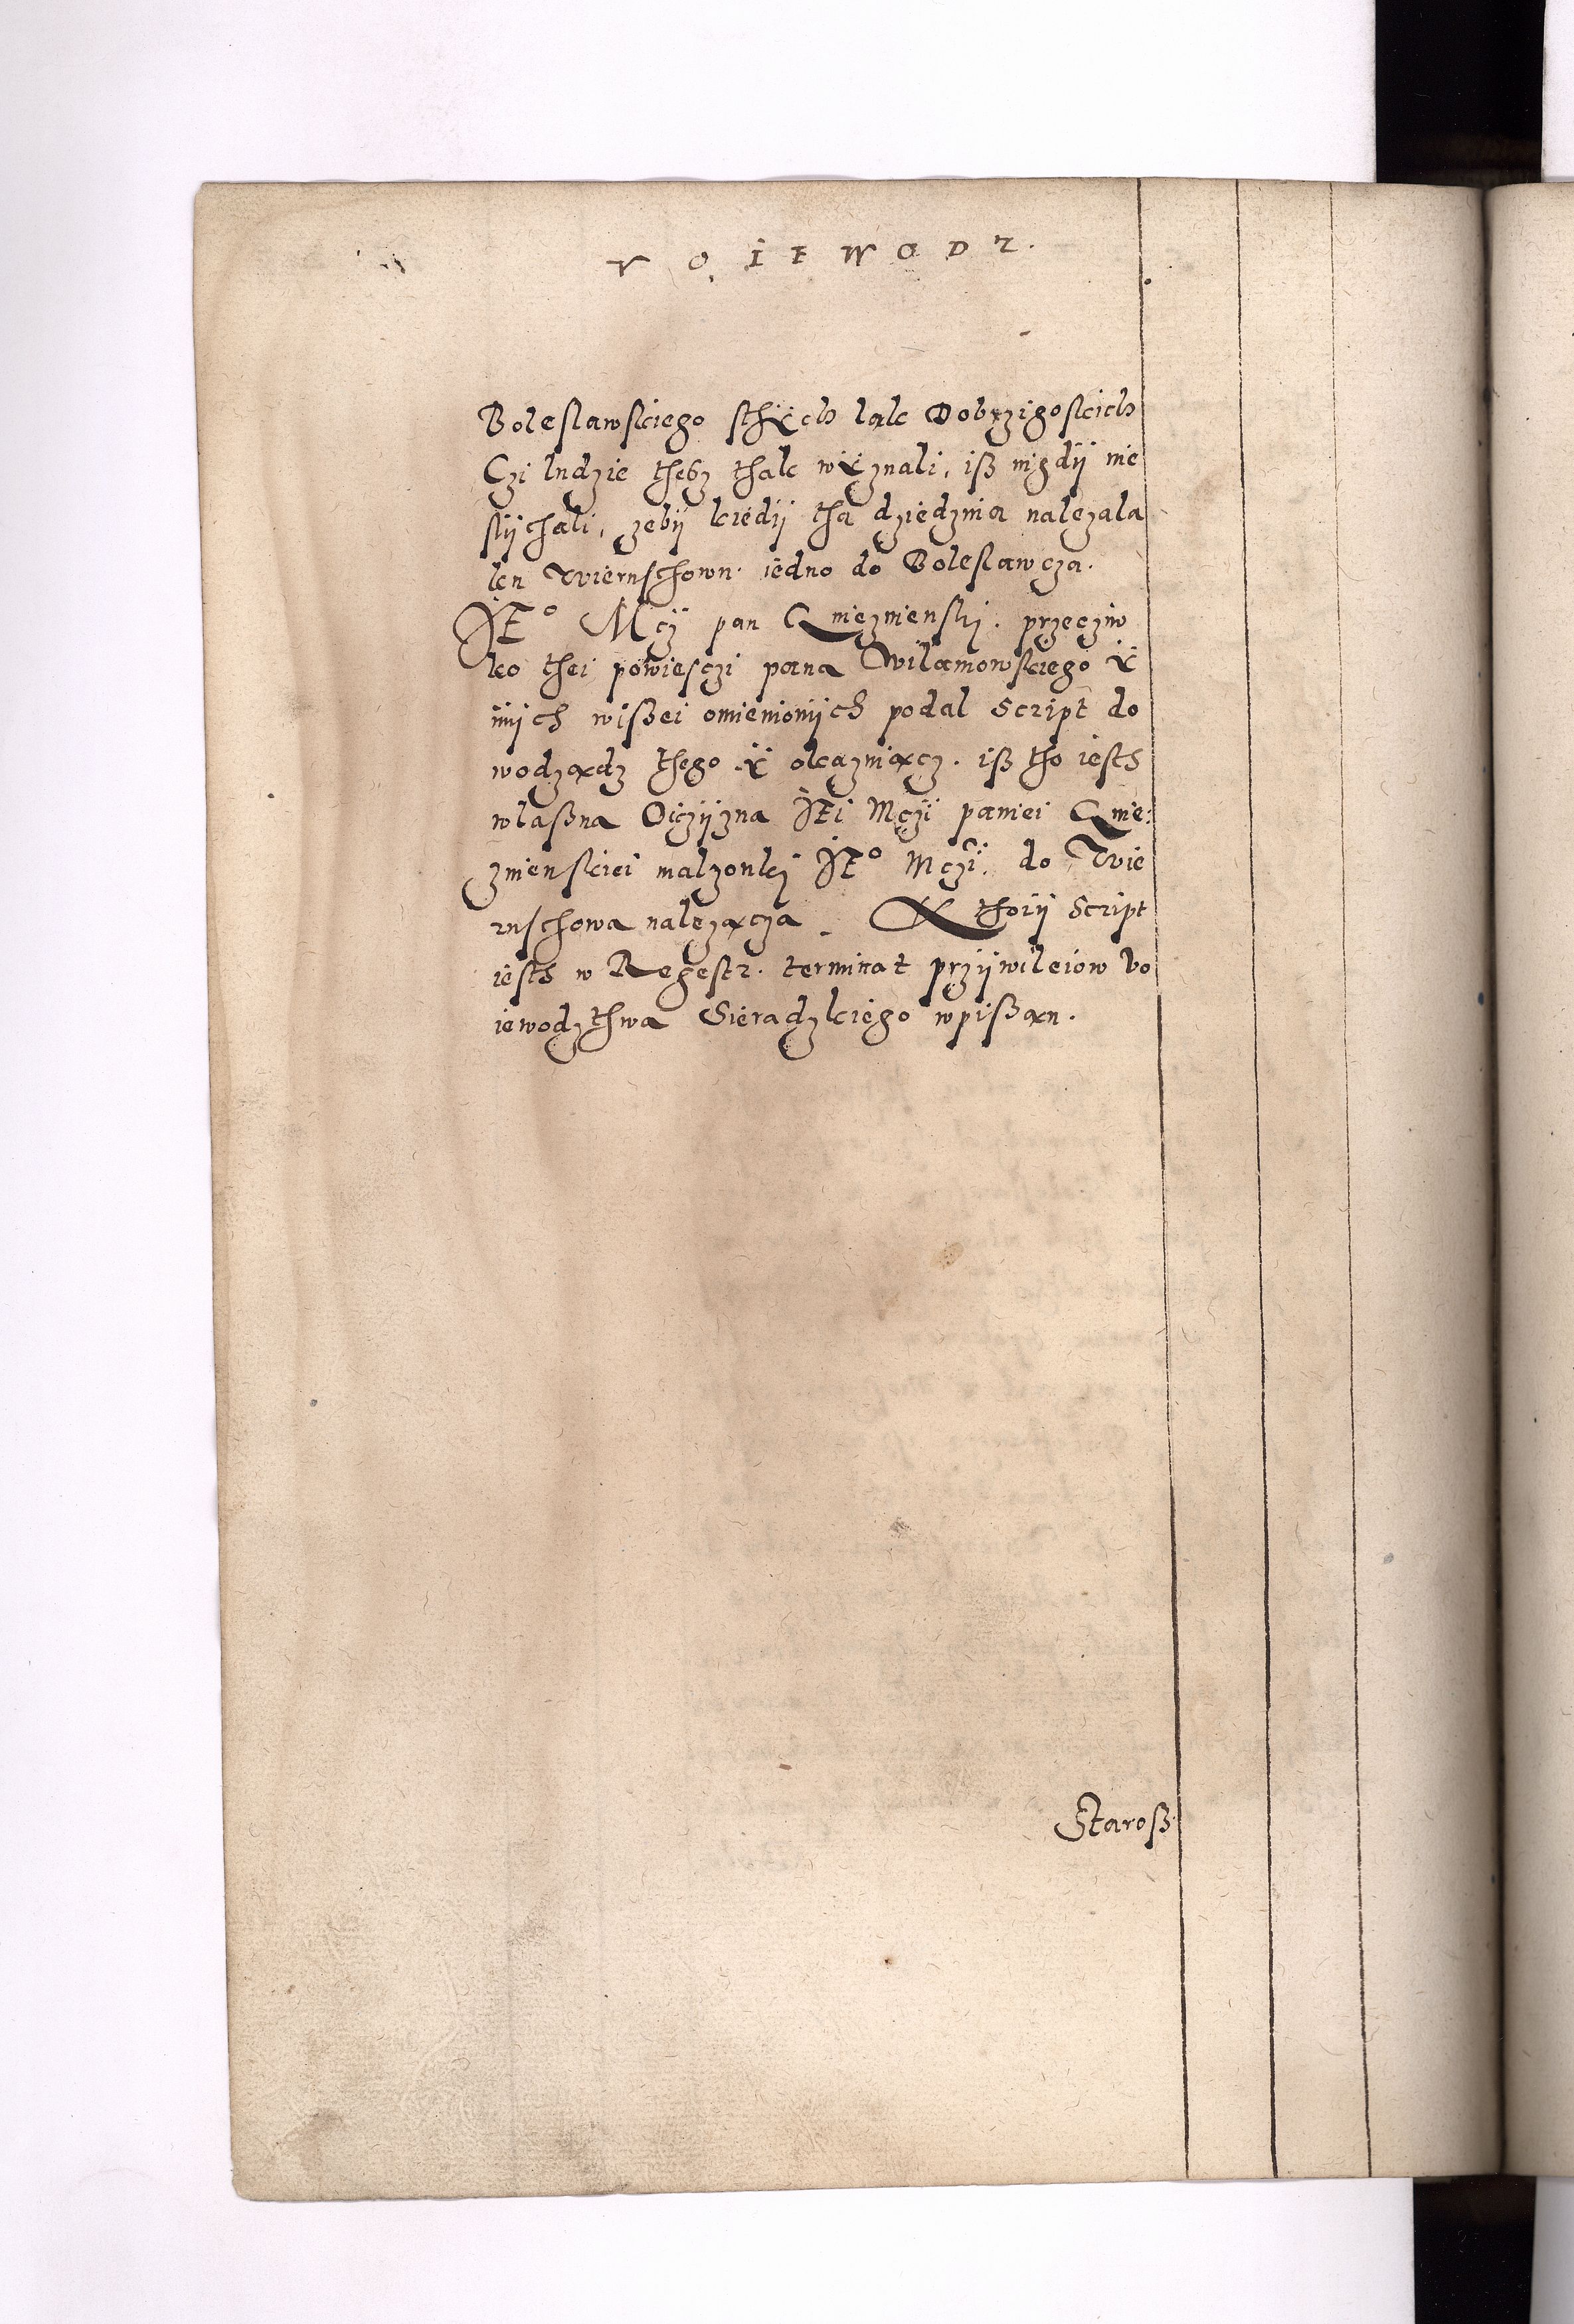 VOIEWODZ.
Boleslawskiego sthÿch iak Dobrzigoskich
Czi ludzie thesz thak wÿznali, iß nigdÿ nie
slÿchali, zebÿ kiedÿ tha dziedzina nalezala
ku Wieruschowu iedno do Boleslawcza.
JE° Mcz pan Gnieznienski. przeczÿw
ko thei powiesczi pana Wilamowskiego ÿ
innÿch wißei omienionÿch podal Script do
wodzacz thego ÿ okazuiacz. iß tho iesth
wlaßna Oiczÿzna JEi Mczi paniei Gnie:
znienskiei malzonki JE° Mczi. do Wie
ruschowa nalezacza. Kthorÿ Script
iesth w Regestr. terminat przÿwileiow Vo
iewodzthwa Sieradzkiego wpißan.
Staroß.